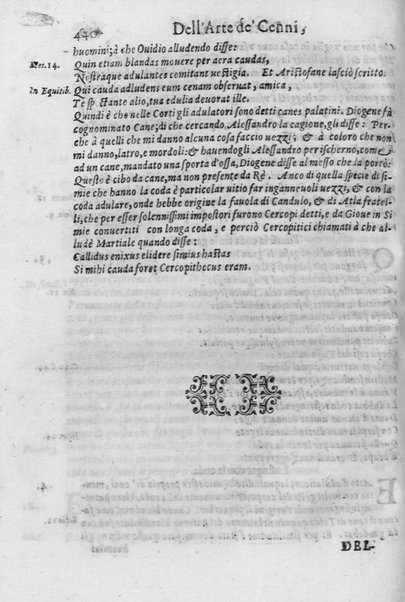 440 Dell'Arte de' Cenni,
huominj à che Ovidio alludendo disse:
Met. 14. Quin etiam blandas movere per aera caudas,
Nostraque adulantes comitant uestigia. Et Aristofane lasciò scritto.
In Equitib. Qui cauda adludens eum cenam obseruat, amica,
Te spectante alio, tua edulia devorat ille.
Quindi è che nelle Corti gli adulatori sono detti canes palatini. Diogene fù
cognominato Cane; di che cercando Alessandro la cagione, gli disse: Per-
che à quelli che mi danno alcuna cosa faccio uezzi; & à coloro che non
mi danno, latro, e mordoli: & hauendogli Alessandro per ischerno, come
ad un cane, mandato una sporta d'ossa, Diogene disse al messo che la portò:
Questo è cibo da cane, ma non presente da Rè. Anco di quella specie di si-
mie che hanno la coda è particolar uitio far inganneuoli uezzi, & con la
coda adulare, onde hebbe origine la fauola di Candulo, & di Atla fratel-
li, che per esser solennissimi impostori furono Cercopi detti, e da Gioue in Si
mie conuertiti con longa coda, e perciò Cercopitici chiamati à che al-
lude Martiale quando disse:
Callidus enixus elidere simius hastas
Si mihi cauda foret Cercopithecus eram.
DEL-